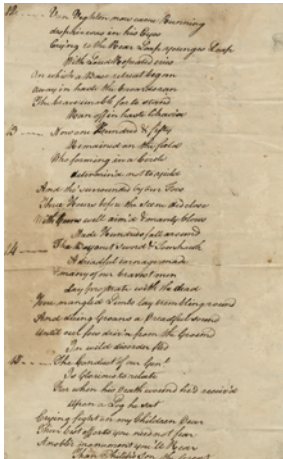 12 Van Veghten now came Running
dispair was in his Eyes
Crying to the Rear Leap younger Leap
With Loud Repeated cries
On which a Base retreat began
Away in haste the
The brave unable for to stand
Ran off in haste likewise
13 Now one Hundred & fifty
Remained on the field
Who forming in a
determin'd not to yield
And tho' surrounded by our Foes
Hours before the Scene did close
With well aim'd & manly blows
Made Hundreds fall around
14 The Sword & Tomhawk
A dreadful carnage made
& many of our bravest men
Lay prostrate with the dead
Here mangled Limbs lay trembling round
And dieing Groans a Dreadful sound
Until our foes driv'n from the Ground
In wild disorder fled
The Conduct of our Genl
Is Glorious to relate
For when his Death wound he'd receiv'd
Upon a Log he sat
Crying fight on my Children Dear
Their best efforts you need not fear
Another monument you'll Rear
Than Philip's Son the Great